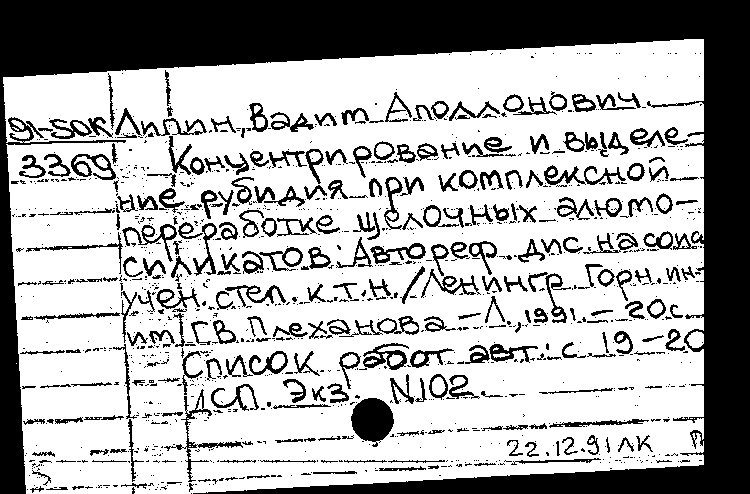 91-50к Липин, Вадим Аполлонович.
3369 Концентрирование и выделе-
ние рубидия при комплексной
переработке щелочных алюмо-
силикатов: Автореф. дис. на соиск
учен. степ. к.т.н. / Ленингр Горн. ин-
ит Г.В. Плеханова – Л., 1991. – 20 с.
Список работ авт.: с. 19–20
ДСП. Экз. N 102.
22.12.91 ЛК П
5